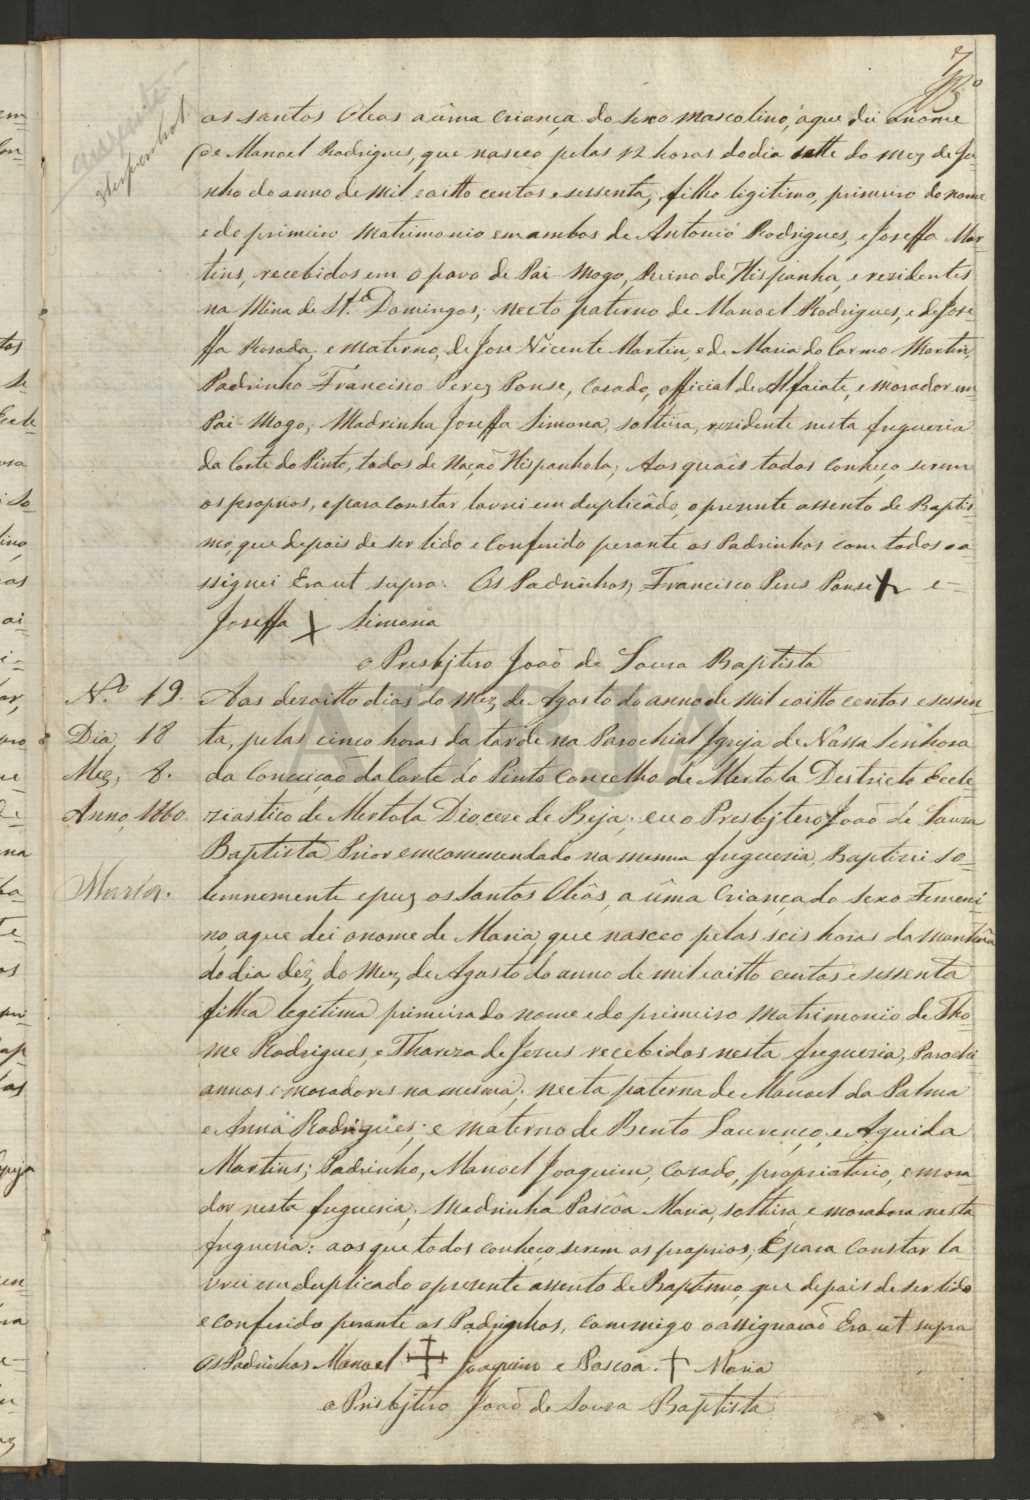 7
os santos Oleos a ûma Criança do sexo mascolino, aque dei o nome
de Manoel Rodrigues, que nasceo pelas 12 horas do dia sette do mez de Ju-
nho do anno de mil e oitto centos e sessenta, filho legitimo, primeiro do nome
e do primeiro Matrimonio em ambos de Antonio Rodrigues, e Joseffa Mar-
tins, recebidos em o povo de Pai Mogo, Reino de Hispanha, e rezidentes
na Mina de St.º Domingos; necto paterno de Manoel Rodrigues, e de Jose-
ffa Rosada, e materno, de Jose Vicente Martin, e de Maria do Carmo Martin,
Padrinho Francisco Perez Ponse, Casado, official de Alfaiate, e morador em
Pai-Mogo, Madrinha Joseffa Simona, solteira, rezidente nesta fregueria
da Corte do Pinto, todos de Nação Hispanhola; Aos quais todos Conheço serem
os proprios, e para constar lavrei em duplicádo, o prezente assento de Baptis-
mo, que depois de ser lido e Conferido perante os Padrinhos com todos o a
ssignei Era ut supra. Os Padrinhos, Francisco Peres Ponse e
Joseffa Simona
o Presbjtero João de Souza Baptista
Nº 19. Aos dezoitto dias do Mez de Agosto do anno de Mil e oitto centos e sessen-
Dia, 18 ta, pelas cinco horas da tarde na Parochial Igreja de Nossa Senhora
Mez, 8. da Conceição da Corte do Pinto Concelho de Mertola Destricto Eccle-
Anno, 1860. ziastico de Mertola Diocese de Beja; eu o Presbjtero João de Souza
Baptista Prior emcommendado na mesma fregueria, Baptizei so-
Maria. lemnemente e puz os Santos Oleôs, a ûma Criança do sexo Femeni-
no, aque dei o nome de Maria, que nasceo pelas seis horas da manhãa
do dia déz do Mez de Agosto do anno de mil e oitto centos e sessenta
filha legitima primeira do nome e do primeiro Matrimonio de Tho-
me Rodrigues, e Thareza de Jezus recebidos nesta fregueria, Parochi
annos e moradores na mesma; necta paterna de Manoel da Palma
e Anna Rodrigues; e materno de Bento Lourenço, e Aguida
Martins; Padrinho, Manoel Joaquim, Casado, propriatario, e mora-
dor nesta fregueria; Madrinha Pascôa Maria, solteira, e moradora nesta
fregueria: aos que todos conheço serem os proprios; E para Constar la-
vrei em duplicado o presente assento de Baptismo, que depois de ser lido
e conferido perante os Padrinhos, commigo o assignarão Era ut supra
Os Padrinhos Manoel Joaquim e Pascoa Maria
o Presbjtero João de Souza Baptista